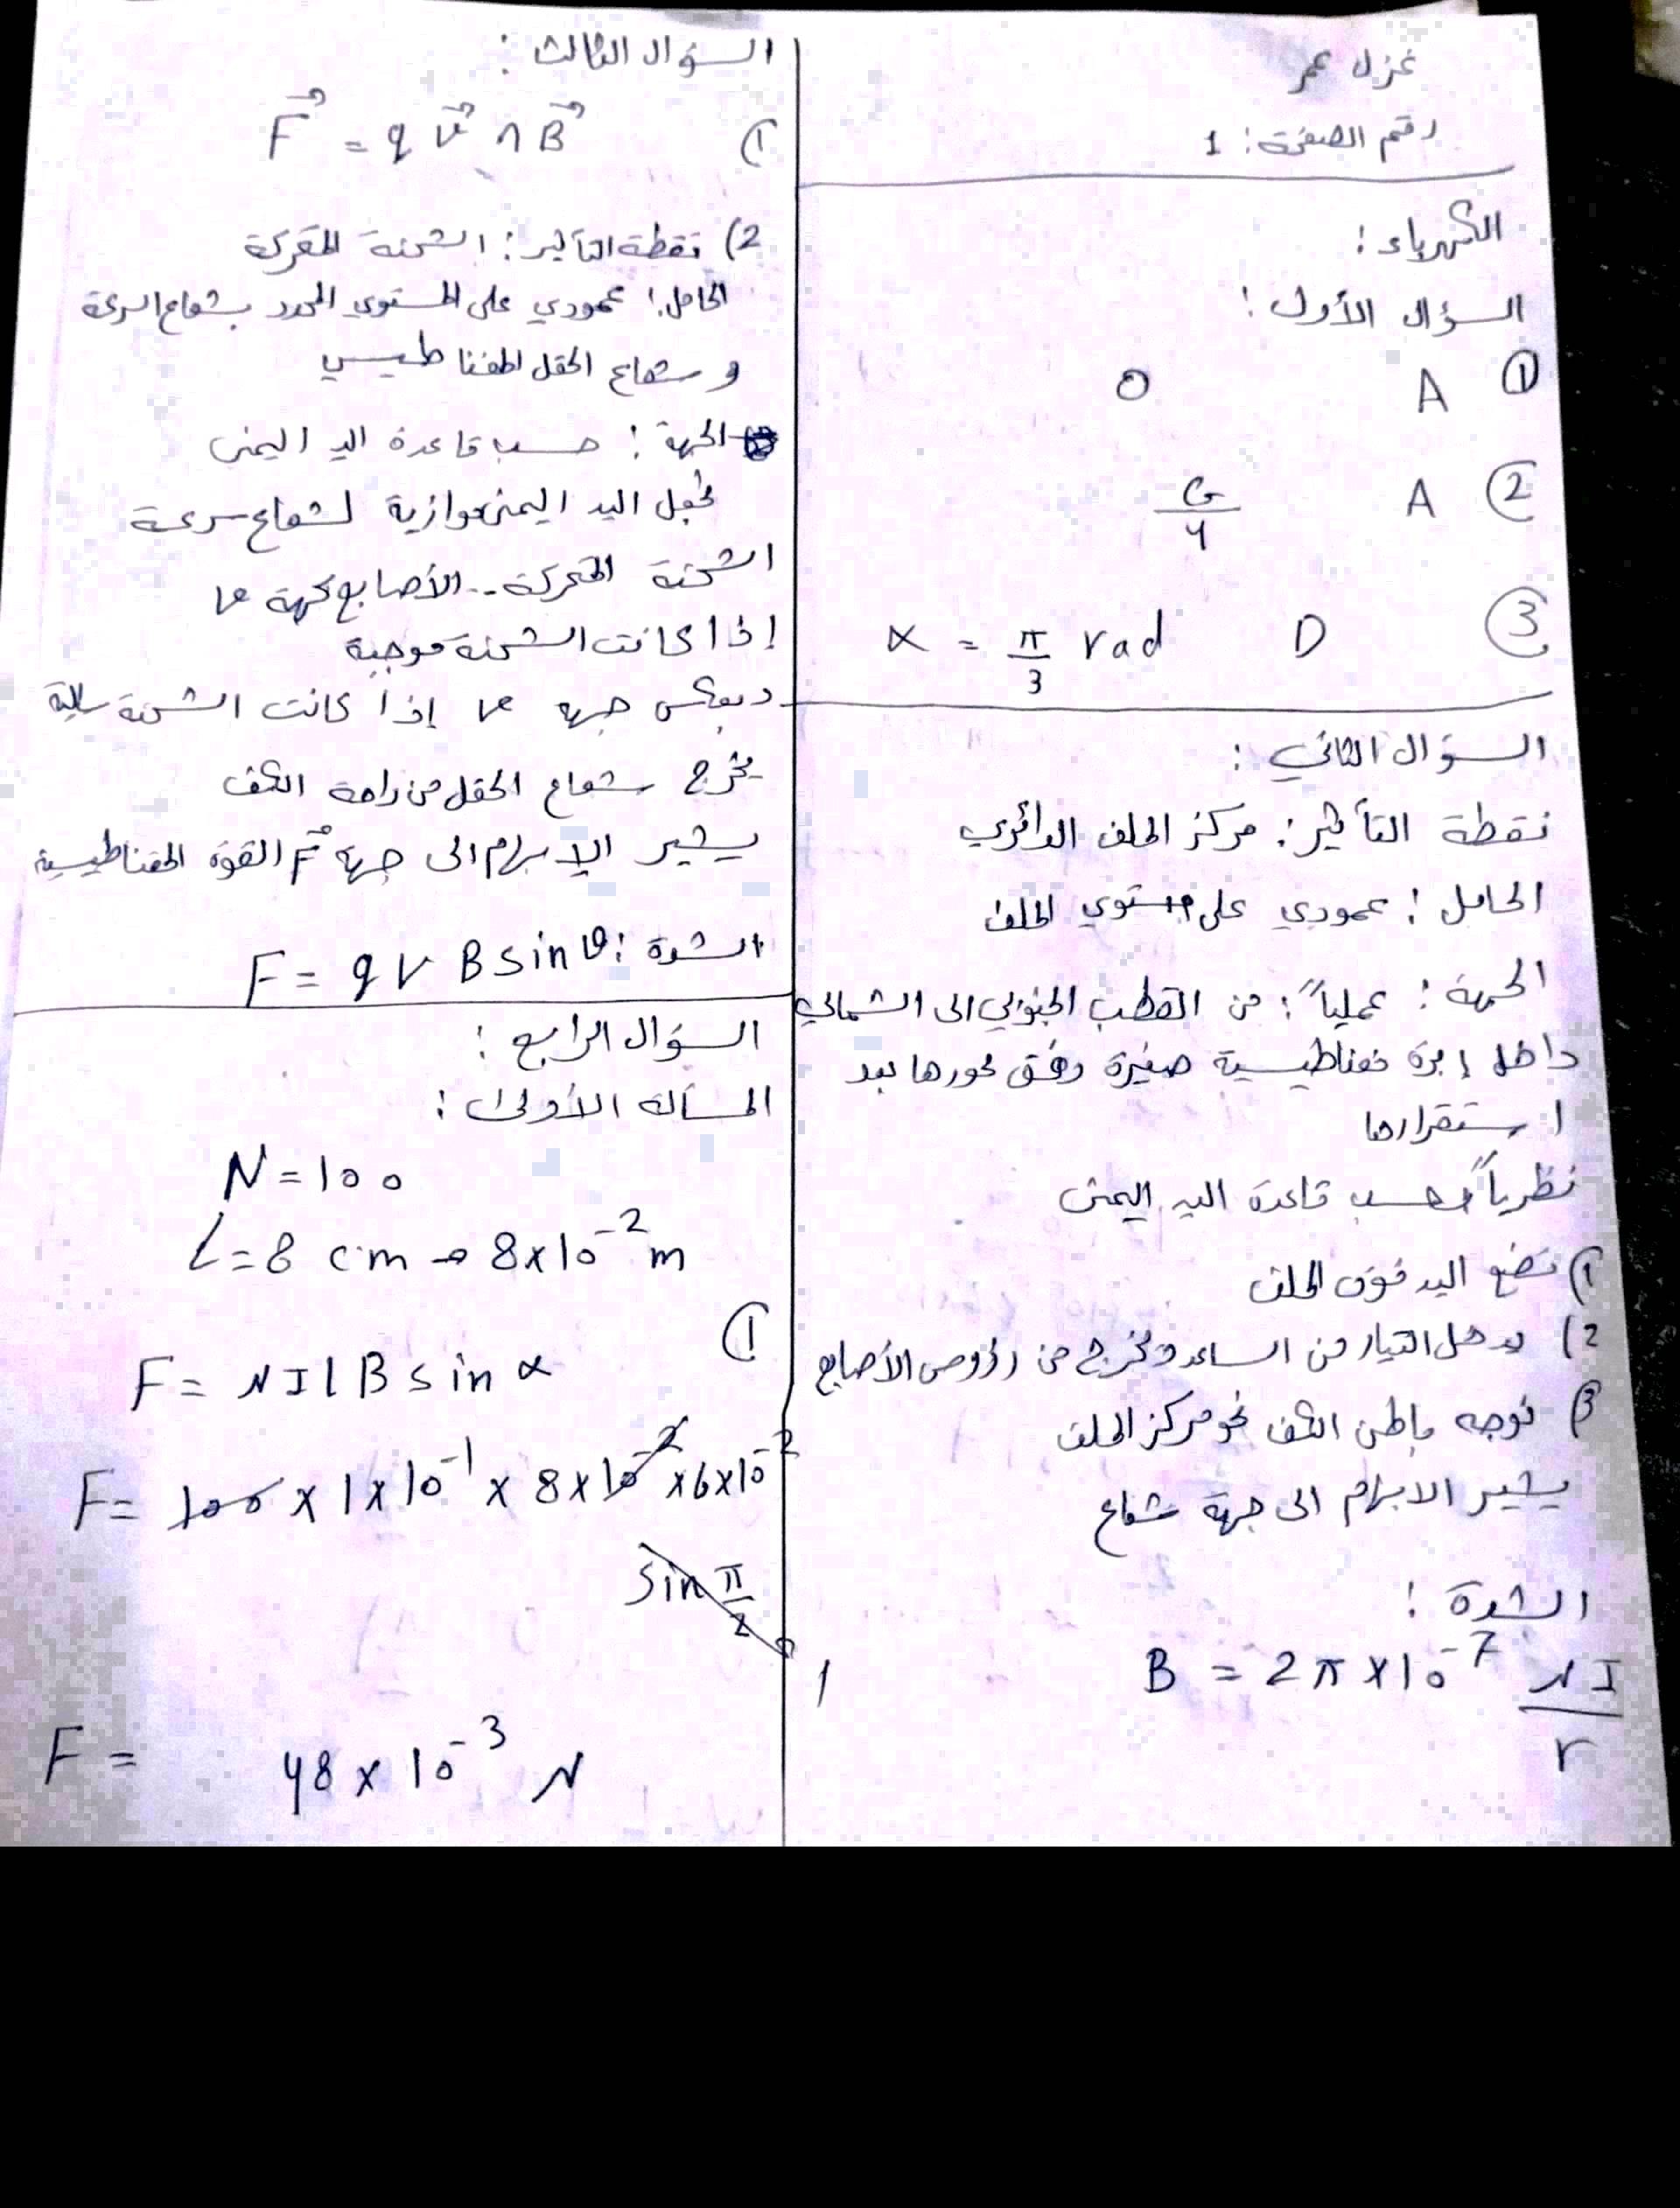 غزل عمر
رقم الصفحة: 1
الكهرباء:
السؤال الأول:
① A 0
② A G/4
③ D α = π/3 rad
السؤال الثاني:
نقطة التأثير: مركز الملف الدائري
الحامل: عمودي على مستوي الملف
الجهة: عملياً: من القطب الجنوبي الى الشمالي
داخل إبرة مغناطيسية صغيرة وفق محورها بعد
استقرارها
نظرياً حسب قاعدة اليد اليمنى
1) نضع اليد فوق الملف
2) يدخل التيار من الساعد ويخرج من رؤوس الأصابع
3) نوجه باطن الكف نحو مركز الملف
يشير الابهام الى جهة شعاع
الشدة:
B = 2π×10⁻⁷ NI/r
السؤال الثالث:
1) F⃗ = q v⃗ ∧ B⃗
2) نقطة التأثير: الشحنة المتحركة
الحامل: عمودي على المستوي المحدد بشعاع السرعة
و شعاع الحقل المغناطيسي
الجهة: حسب قاعدة اليد اليمنى
نجعل اليد اليمنى موازية لشعاع سرعة
الشحنة المتحركة.. الأصابع بجهة v
إذا كانت الشحنة موجبة
وبعكس جهة v إذا كانت الشحنة سالبة
يخرج شعاع الحقل من راحة الكف
يشير الإبهام الى جهة F⃗ القوة المغناطيسية
الشدة: F = q v B sin θ
السؤال الرابع:
المسألة الأولى:
N = 100
L = 8 cm → 8×10⁻² m
1)
F = N I L B sin α
F = 100 × 1×10⁻¹ × 8×10⁻² × 6×10⁻²
sin π/2 1
F = 48×10⁻³ N